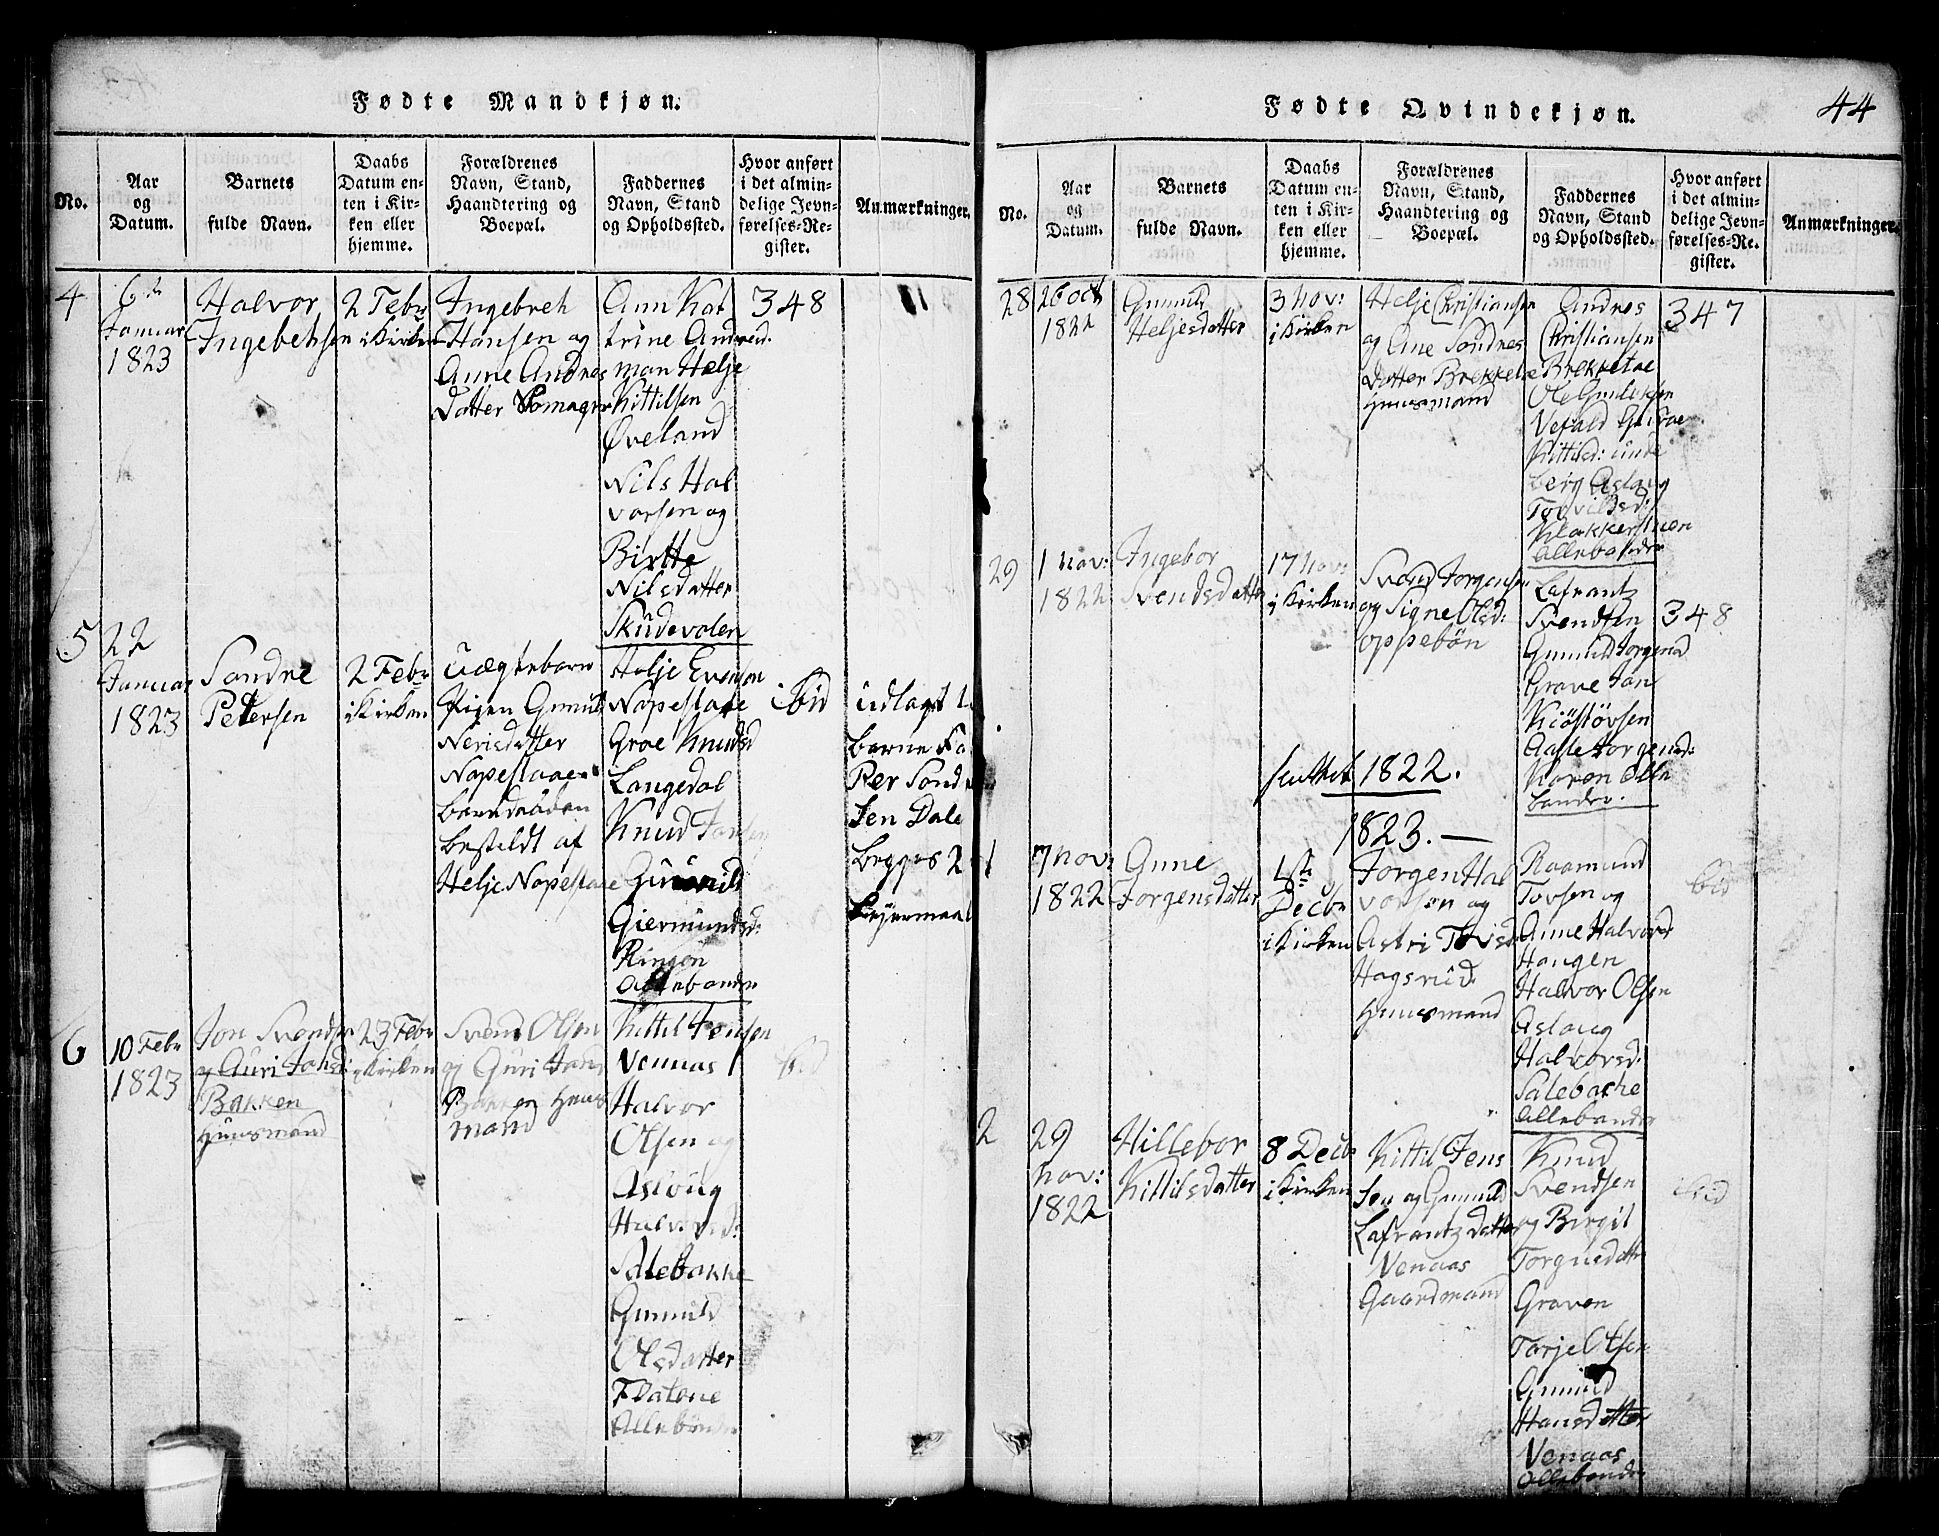 Fødte Mandkjøn.
No.
Aar
og
Datum.
Barnets
fulde Navn.
Daabs
Datum en-
ten i Kir-
ken eller
hjemme.
Forældrenes
Navn, Stand,
Haandtering og
Boepæl.
Faddernes
Navn, Stand
og Opholdssted.
Hvor anført
i det almin-
delige Jevn-
førelses-Re-
gister.
Anmærkninger.
4
Januar
1823
Halvor
Ingebretsen
2 Febr
i Kirken
Ingebreth
Hansen og
Anne Andres
Datter
Ann Kat
trine
Helje
Kittilsen
Øveland
Nils Hal
vorsen og
Birtte
Nilsdatter
Skudevolen
348
5
22
Januar
1823
Sondre
Petersen
2 Febr
i Kirken
Uægtebarn
Pigen Gunild
Nerisdatter
Napestaae
barndaaben
bestildt af
Helje Napestaae
Helje Evensen
Napestaae
Groe Knudsd
Langedal
Knud Jansen
Gunild
Giermundsd:
Ringon
Allebønder
ibid
udlagt
barne Fa
Per Sond
sen Dale
begges 2
Leyermaal
6
10 Febr
1823
Jon Svends
og Guri Jonsd:
Bakken
Huusmand
23 Febr
i Kirken
Svend Olsen
og Guri Jons
Bakken Huus
mand
Kittil Jensen
Venaas
Halvor
Olsen og
Asloug
Halvorsd:
Salebakke
Gunuld
Olsdatter
Allebønder
ibid
Fødte Qvindekjøn.
44
No.
Aar
og
Datum.
Barnets
fulde Navn.
Daabs
Datum en-
ten i Kir-
ken eller
hjemme.
Forældrenes
Navn, Stand,
Haandtering og
Boepæl.
Faddernes
Navn, Stand
og Opholdssted.
Hvor anført
i det almin-
delige Jevn-
førelses-Re-
gister.
Anmærkninger.
28
26 oct
1822
Gunild
Heljesdatter
3 Nov:
i Kirken
Helje Christiansen
og Ane Sondres
Datter Brekketae
Huusmand
Andres
Christiansen
Brekketae
Ole Gunleksen
Vefald
Kittilsd: Linde
berg Aslaug
Torvildsd:
Allebønder
347
29
1 Nov:
1822
Ingebor
Svendsdatter
17 Nov:
i Kirken
Svend Jorgensen
og Signe Olsd:
oppebøn
Lafrantz
Svendsen
Gunuld Jorgensd
Grave Jon
Kiøstøvsen
Aasle Jorgensd:
Noron Alle
bønder.
348
sluttet 1822.
1823.
1
7 Nov:
1822
Anne
Jorgensdatter
1ste
Decbr
i Kirken
Jorgen Hal
vorsen og
Astri Tovsd
Hagsrud
Huusmand
Raamund
Tovsen og
Anne Halvorsd
Haugen
Halvor Olsen
Aslaug
Halvorsd:
Salebakke
Allebønder
ibid
2
29
Nov:
1822
Hillebor
Kittilsdatter
8 Decb
i Kirken
Kittil Jens
sen og Gunuld
Lafrantzdatter
Venaas
Gaardmand
Knud
Svendsen
og Birgit
Torguesdatter
Graven
Torje Olsen
Gunild
Hansdatter
Venaas
Allebønder
ibid